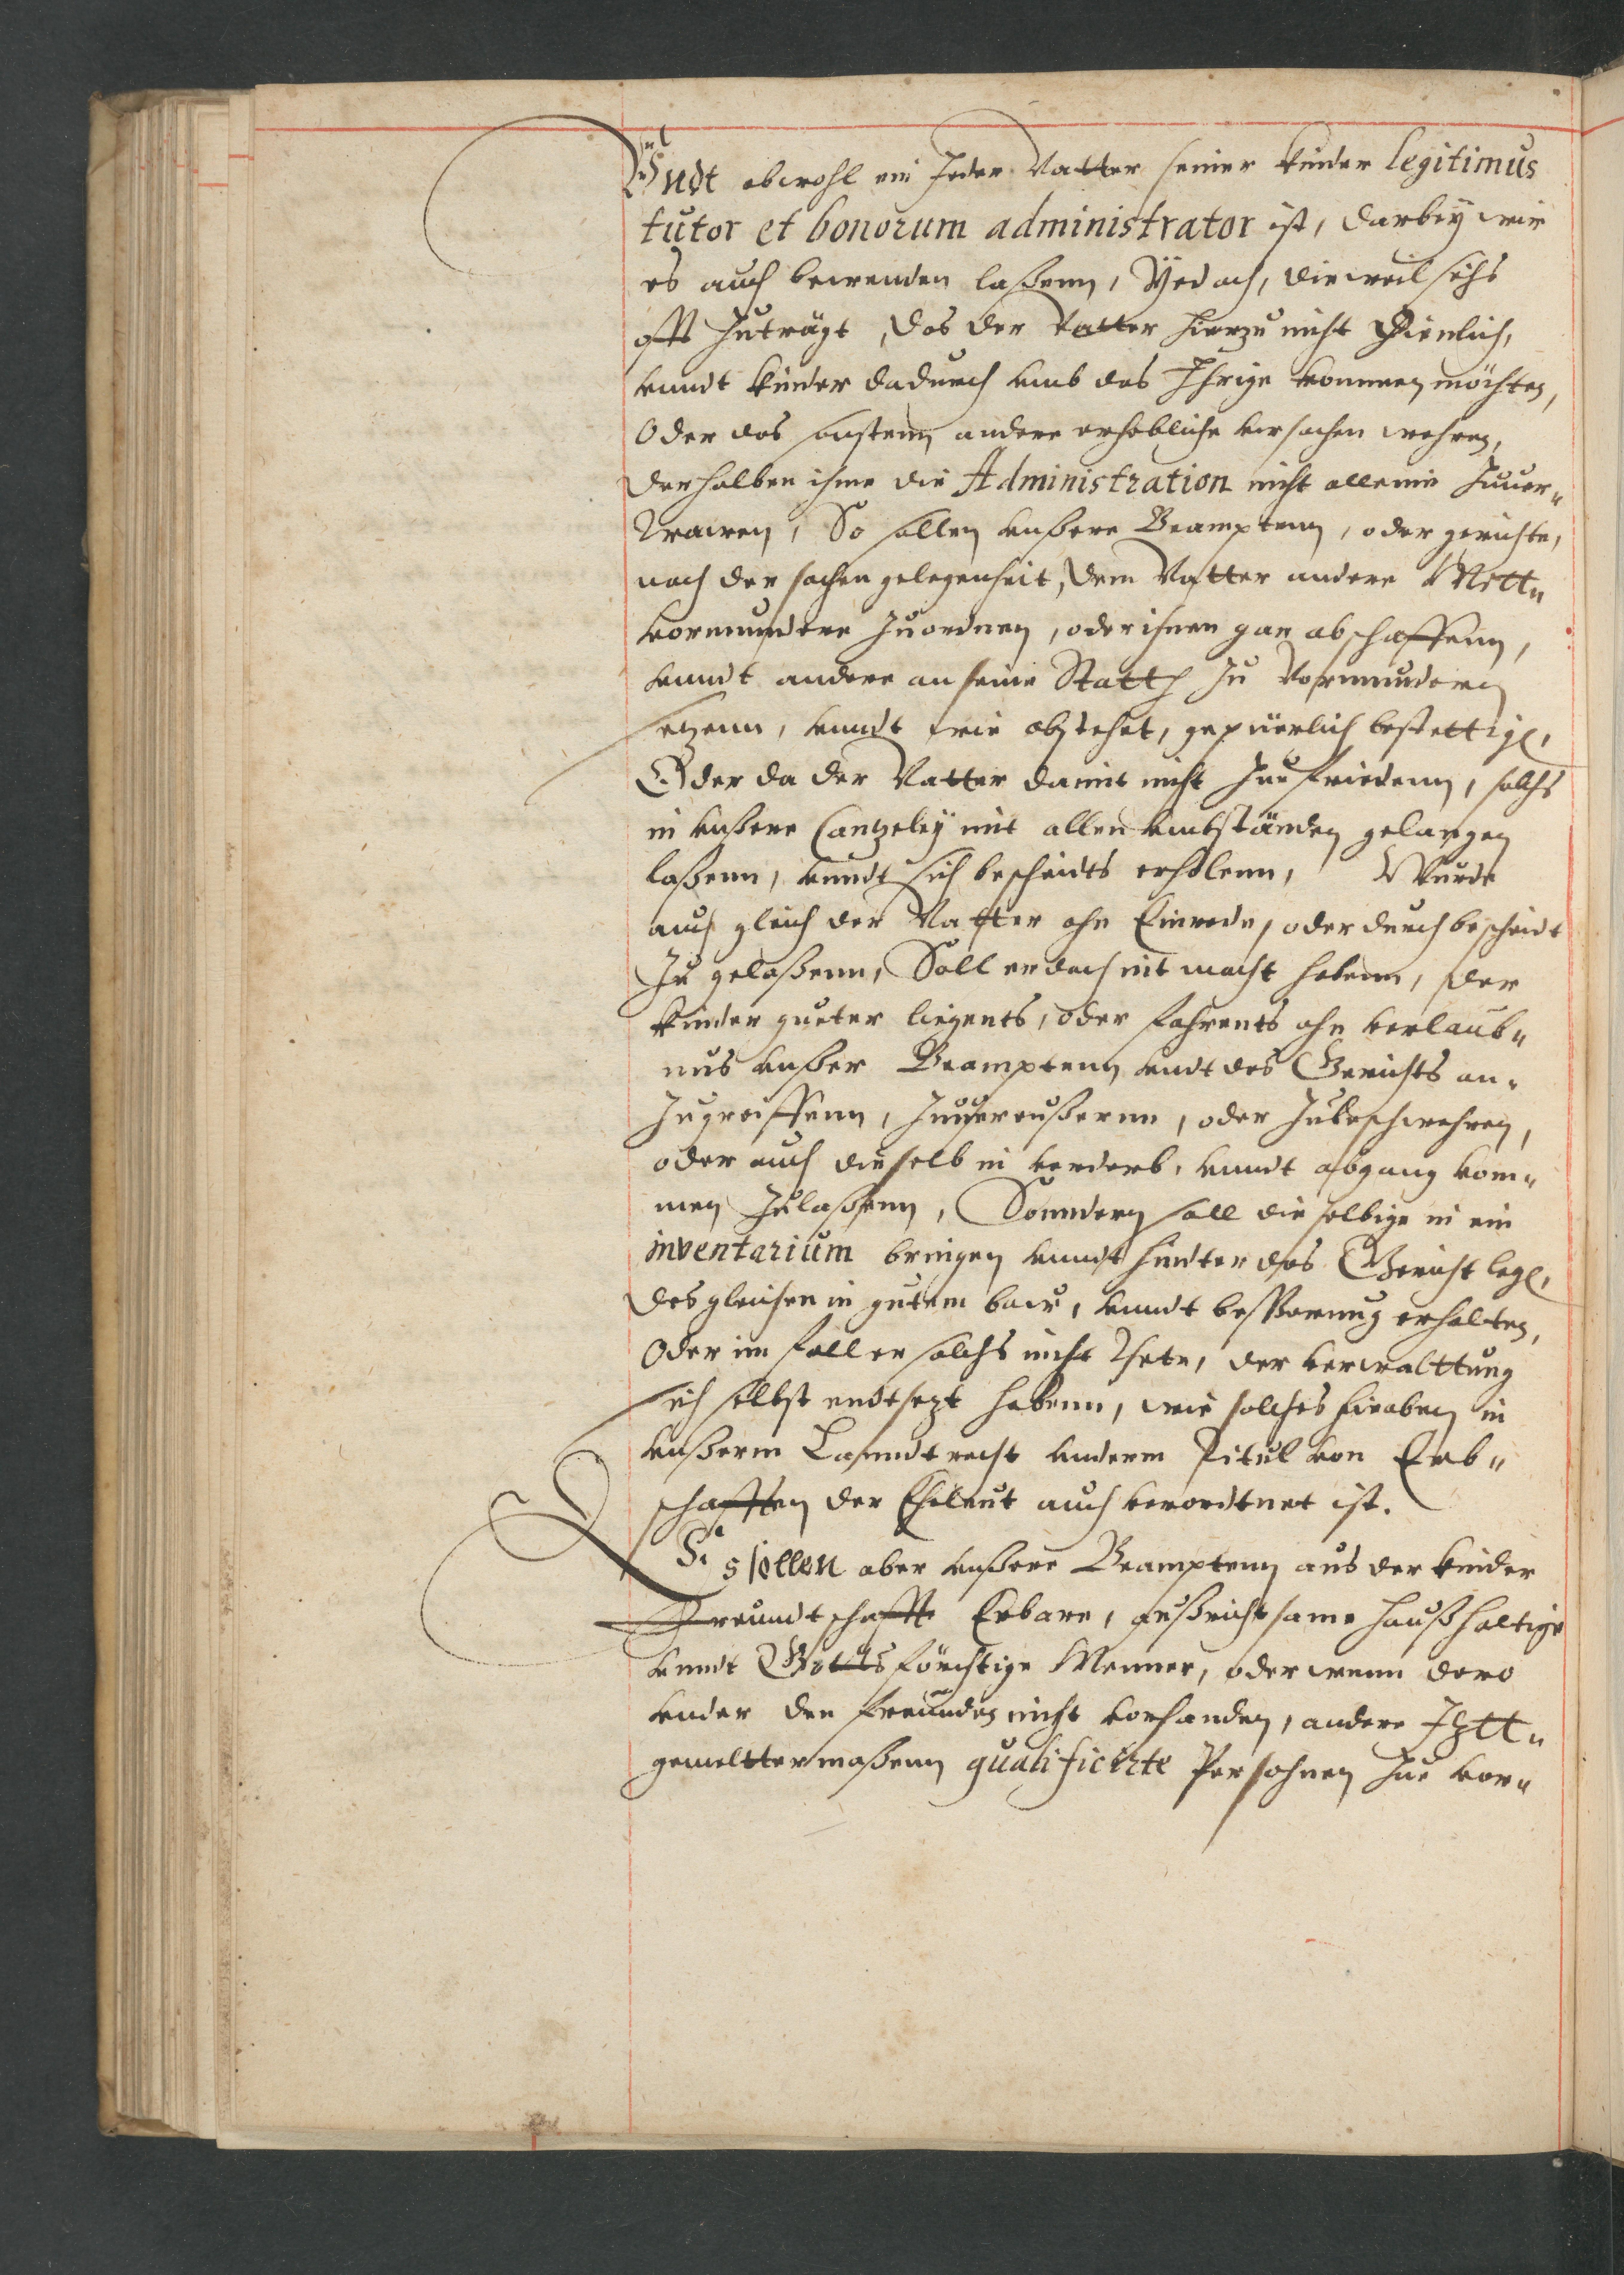 Vndt obwohl ein Jeder Vatter seiner kinder legitimus
tutor et bonorum administrator ist, darbeÿ wir
es auch bewenden laßenn, Yedoch, dieweil sichs
offt zuträgt, das der Vatter hierzu nicht dienlich,
vnndt kinder dadurch vmb das Ihrige kommen möchten,
Oder das sonstenn andere erhebliche vrsachen wehren,
derhalben ihme die Administration nicht alleine zuuer„
trawen, So sollen vnßere Beamptenn, oder gerichte,
nach der sachen gelegenheit, dem Vatter andere Mitt„
vormundere zuordnen, oder ihnen gar abschaffenn,
vnndt andere an seine Statt zu Vormundern
setzenn, vnndt wie obstehet, gepüerlich bestettigen,
Oder da der Vatter damit nicht zue friedenn, solchs
in vnßere Cantzeleÿ mit allen vmbständen gelangen
laßenn, vnndt sich bescheidts erholenn, Wurde
auch gleich der Vatter ohn Einrede, oder durch bescheidt
zu gelaßenn, Soll er doch nit macht habenn, der
kinder gueter liegents, oder fahrents ohn verlaub„
nus vnßer Beamptenn vndt des Gerichts an„
zugreiffenn, zuuereußernn, oder zubeschwehren,
oder auch dieselb in verderb, vnndt abgang kom„
men zulaßenn, Sonndern soll dieselbige in ein
inventarium bringen vnndt hinter das Gericht legen,
desgleichen in gutem baw, vnndt beßerung erhalten,
Oder im fall er solchs nicht thete, der verwalttung
sich selbst endtsezt habenn, wie solches hieoben in
vnßerm Lanndtrecht vnderm Titul von Erb„
schafften der Eheleut auch verordtnet ist.
Es sollen aber vnßere Beamptenn aus der kinder
Freundtschafft Erbare, aufrichtsame haußhaltige
vnndt Gottsförchtige Menner, oder wenn dero
vnder den freunden nicht vorhanden, andere Iztt„
gemelttermaßenn qualificirte Persohnen zue vor„